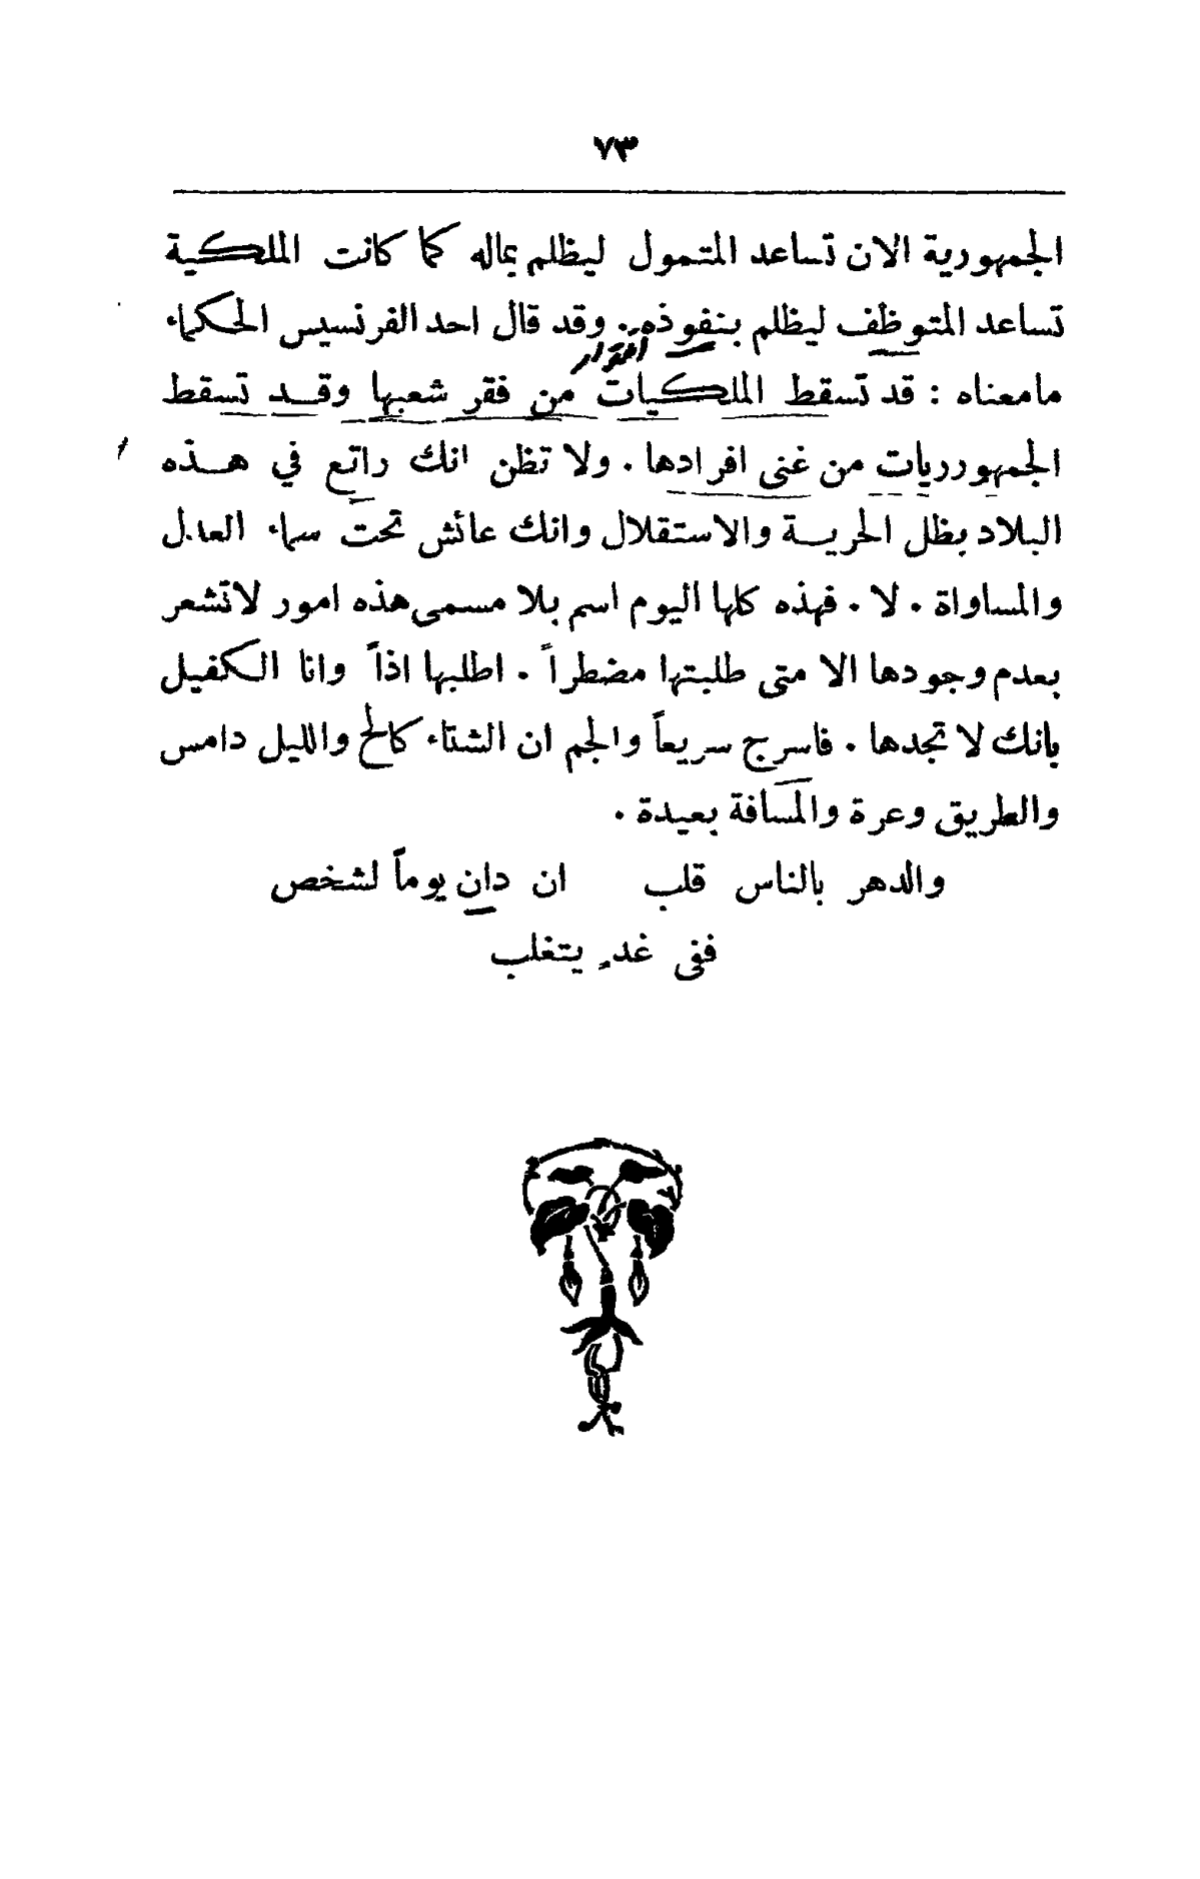 ٧٣
الجمهورية الان تساعد المتمول ليظلم بماله كما كانت الملكية
تساعد المتوظف ليظلم بنفوذه . وقد قال احد الفرنسيس الحكماء
مامعناه : قد تسقط الملكيات من فقر شعبها وقد تسقط
الجمهورريات من غنى افرادها . ولا تظن انك راتع في هذه
البلاد بظل الحرية والاستقلال وانك عائش تحت سماء العدل
والمساواة . لا . فهذه كلها اليوم اسم بلا مسمى هذه امور لاتشعر
بعدم وجودها الا متى طلبتها مضطراً . اطلبها اذاً وانا الكفيل
بانك لا تجدها . فاسرج سريعاً والجم ان الشتاء كالح والليل دامس
والطريق وعرة والمسافة بعيدة .
والدهر بالناس قلب ان دان يوماً لشخص
ففى غدٍ يتغلب